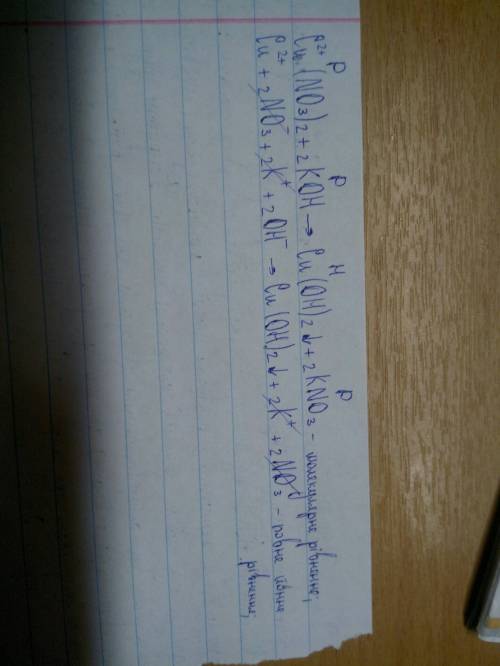 р р н р
Cu²⁺(NO₃)₂ + 2KOH → Cu(OH)₂↓ + 2KNO₃ – молекулярне рівнення;
р
Cu²⁺ + 2NO₃⁻ + 2K⁺ + 2OH⁻ → Cu(OH)₂↓ + 2K⁺ + 2NO₃⁻ – повне йонне
рівнення;